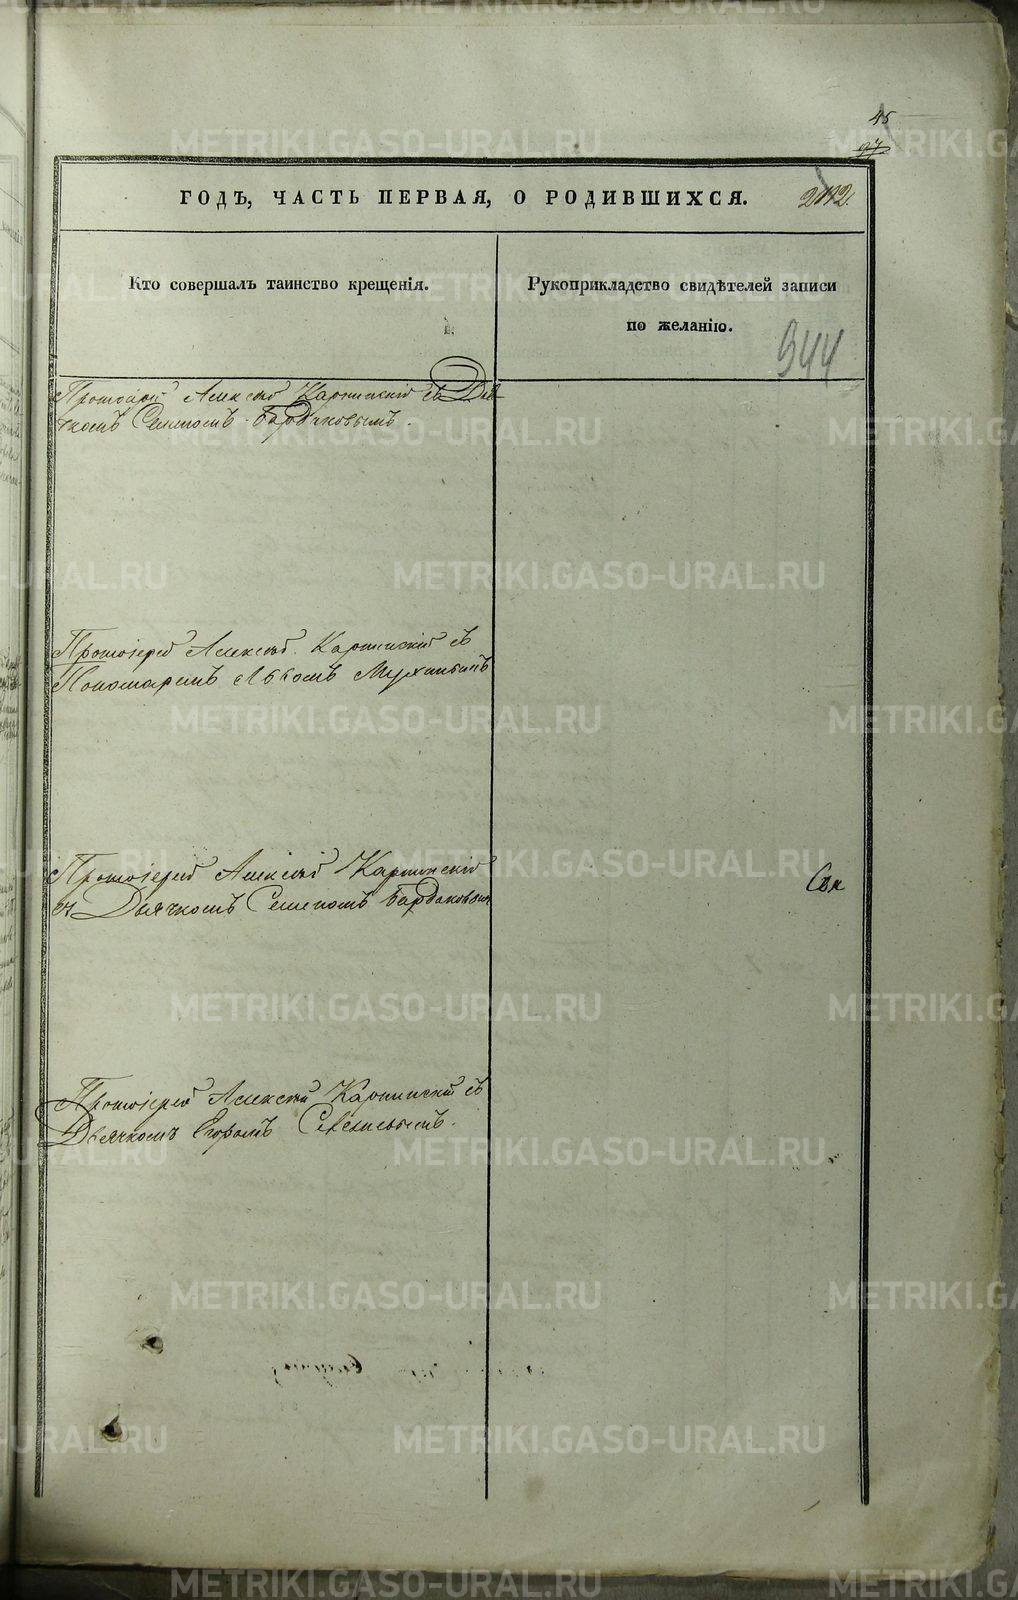 45
97
ГОДЪ, ЧАСТЬ ПЕРВАЯ, О РОДИВШИХСЯ.
Кто совершалъ таинство крещенія.
Рукоприкладство свидѣтелей записи
по желанію.
944
Протоіерей Алексѣй Карпинскій съ Дья-
чкомъ Семеномъ Бардаковымъ.
Протоіерей Алексѣй Карпинскій съ
Пономаремъ Львомъ
Протоіерей Алексѣй Карпинскій
съ Дьячкомъ Семеномъ Бардаковымъ
Протоіерей Алексѣй Карпинскій съ
Дьячкомъ Егоромъ
METRIKI.GASO-URAL.RU